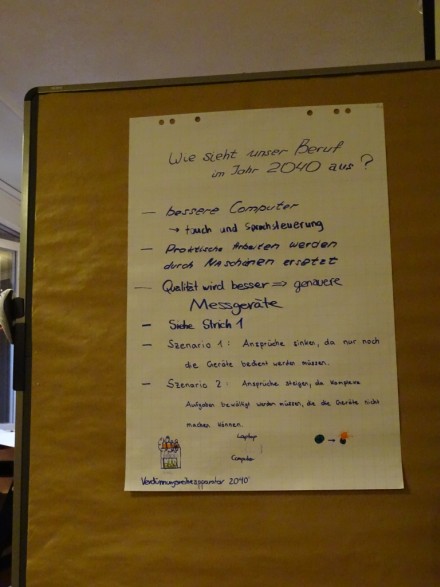 Wie sieht unser Beruf
im Jahr 2040 aus?
— bessere Computer
→ touch und Sprachsteuerung
— Praktische Arbeiten werden
durch Maschinen ersetzt
— Qualität wird besser => genauere
Messgeräte
— Siehe Strich 1
— Szenario 1: Ansprüche sinken, da nur noch
die Geräte bedient werden müssen.
— Szenario 2: Ansprüche steigen, da komplexe
Aufgaben bewältigt werden müssen, die die Geräte nicht
machen können.
Laptop
Computer
→
2040